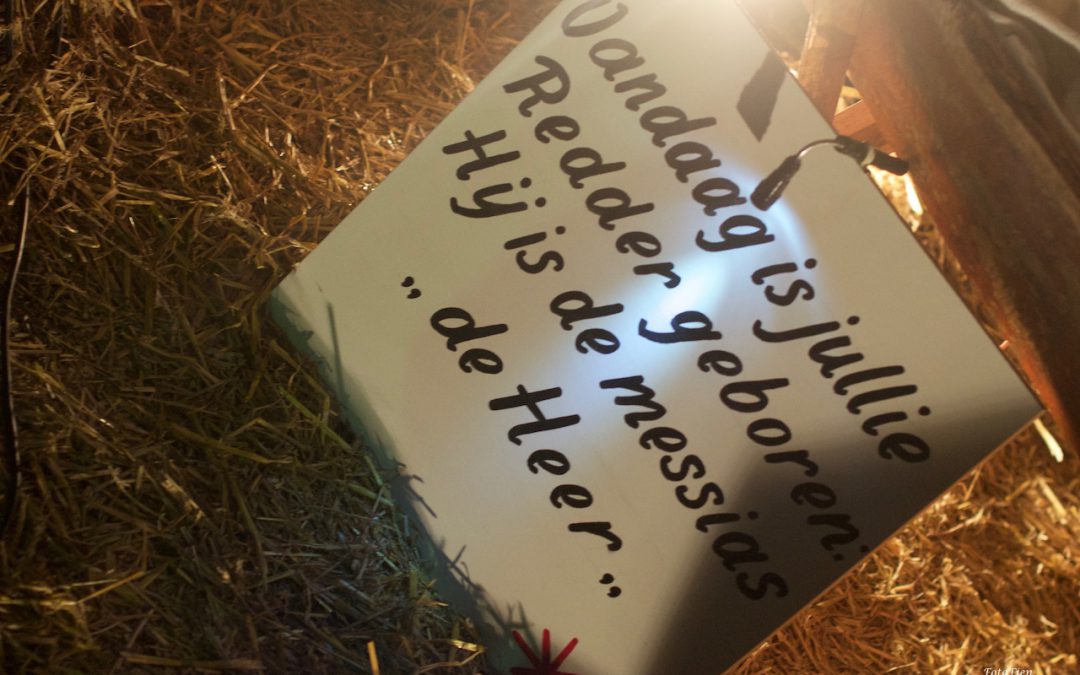 Vandaag is jullie
Redder geboren:
Hij is de messias
„ de Heer ”
FotoTien